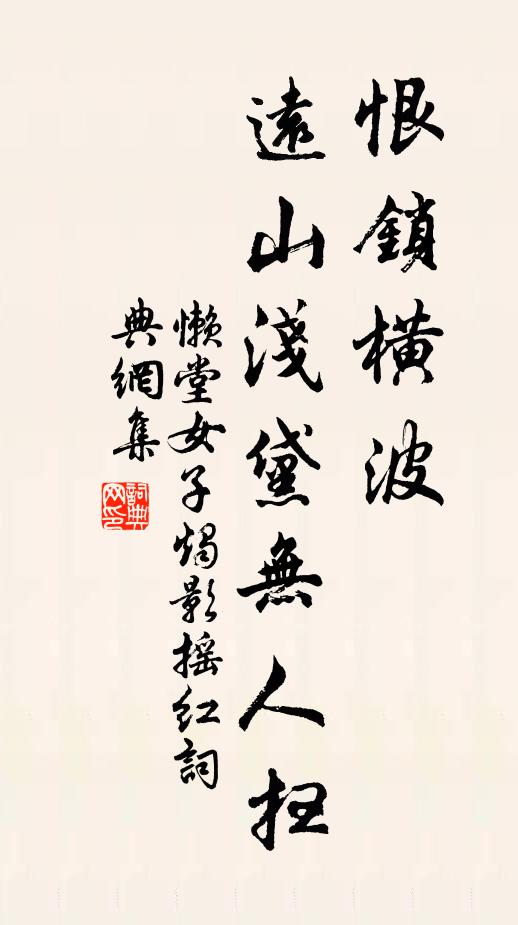 恨鎖橫波
遠山淺黛無人掃
懶堂女子燭影搖紅詞
典網集
詞典
网印